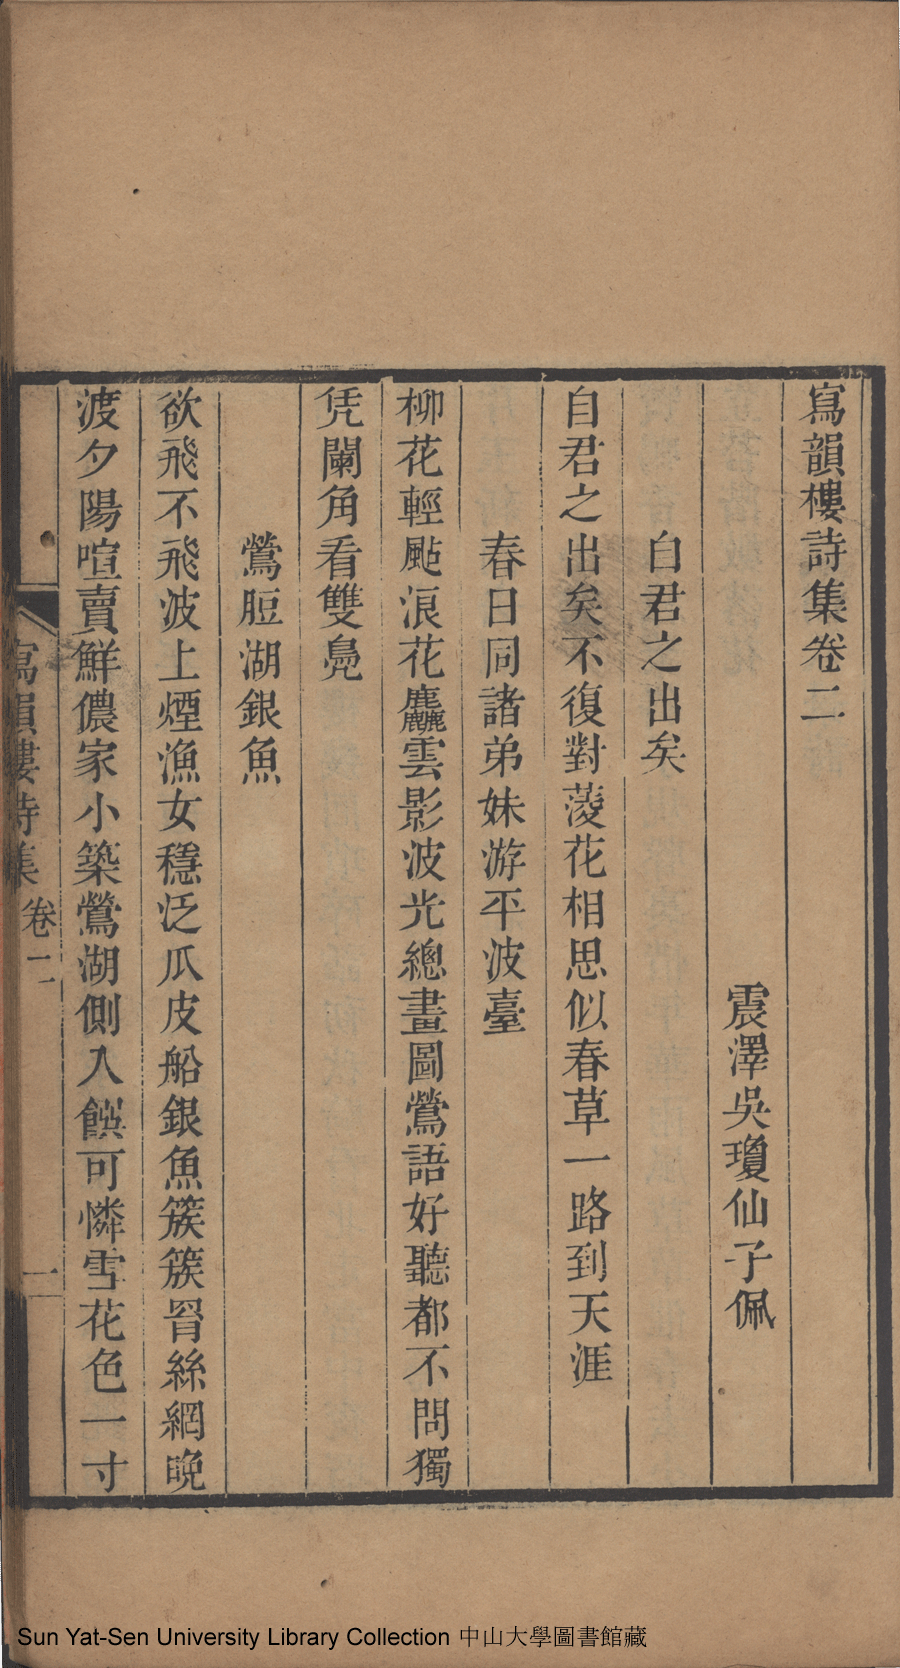 寫韻樓詩集卷二
震澤吳瓊仙子佩
自君之出矣
自君之出矣不復對菱花相思似春草一路到天涯
春日同諸弟妹游平波臺
柳花輕颭浪花麤雲影波光總畫圖鶯語好聽都不問獨
凭闌角看雙鳧
鶯脰湖銀魚
欲飛不飛波上煙漁女穩泛瓜皮船銀魚簇簇罥絲網晚
渡夕陽喧賣鮮儂家小築鶯湖側入饌可憐雪花色一寸
寫韻樓詩集
卷二
一
Sun Yat-Sen University Library Collection 中山大學圖書館藏